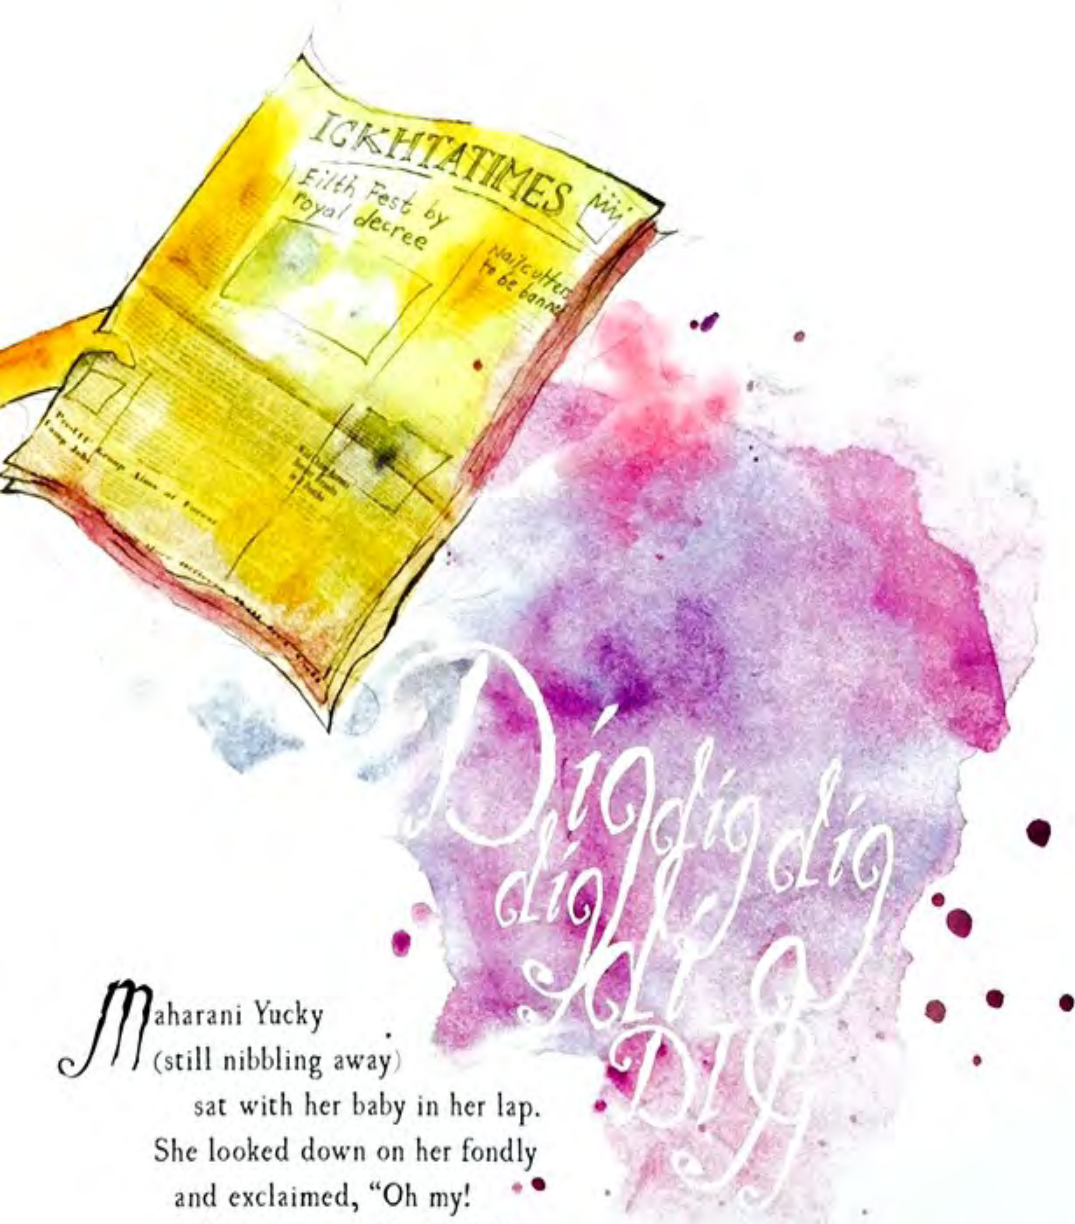 ICKHTATIMES
Filth Fest by
royal decree
Nailcutters
to be banned
Dig dig dig
dig
dig
DIG
Maharani Yucky
(still nibbling away)
sat with her baby in her lap.
She looked down on her fondly
and exclaimed, “Oh my!